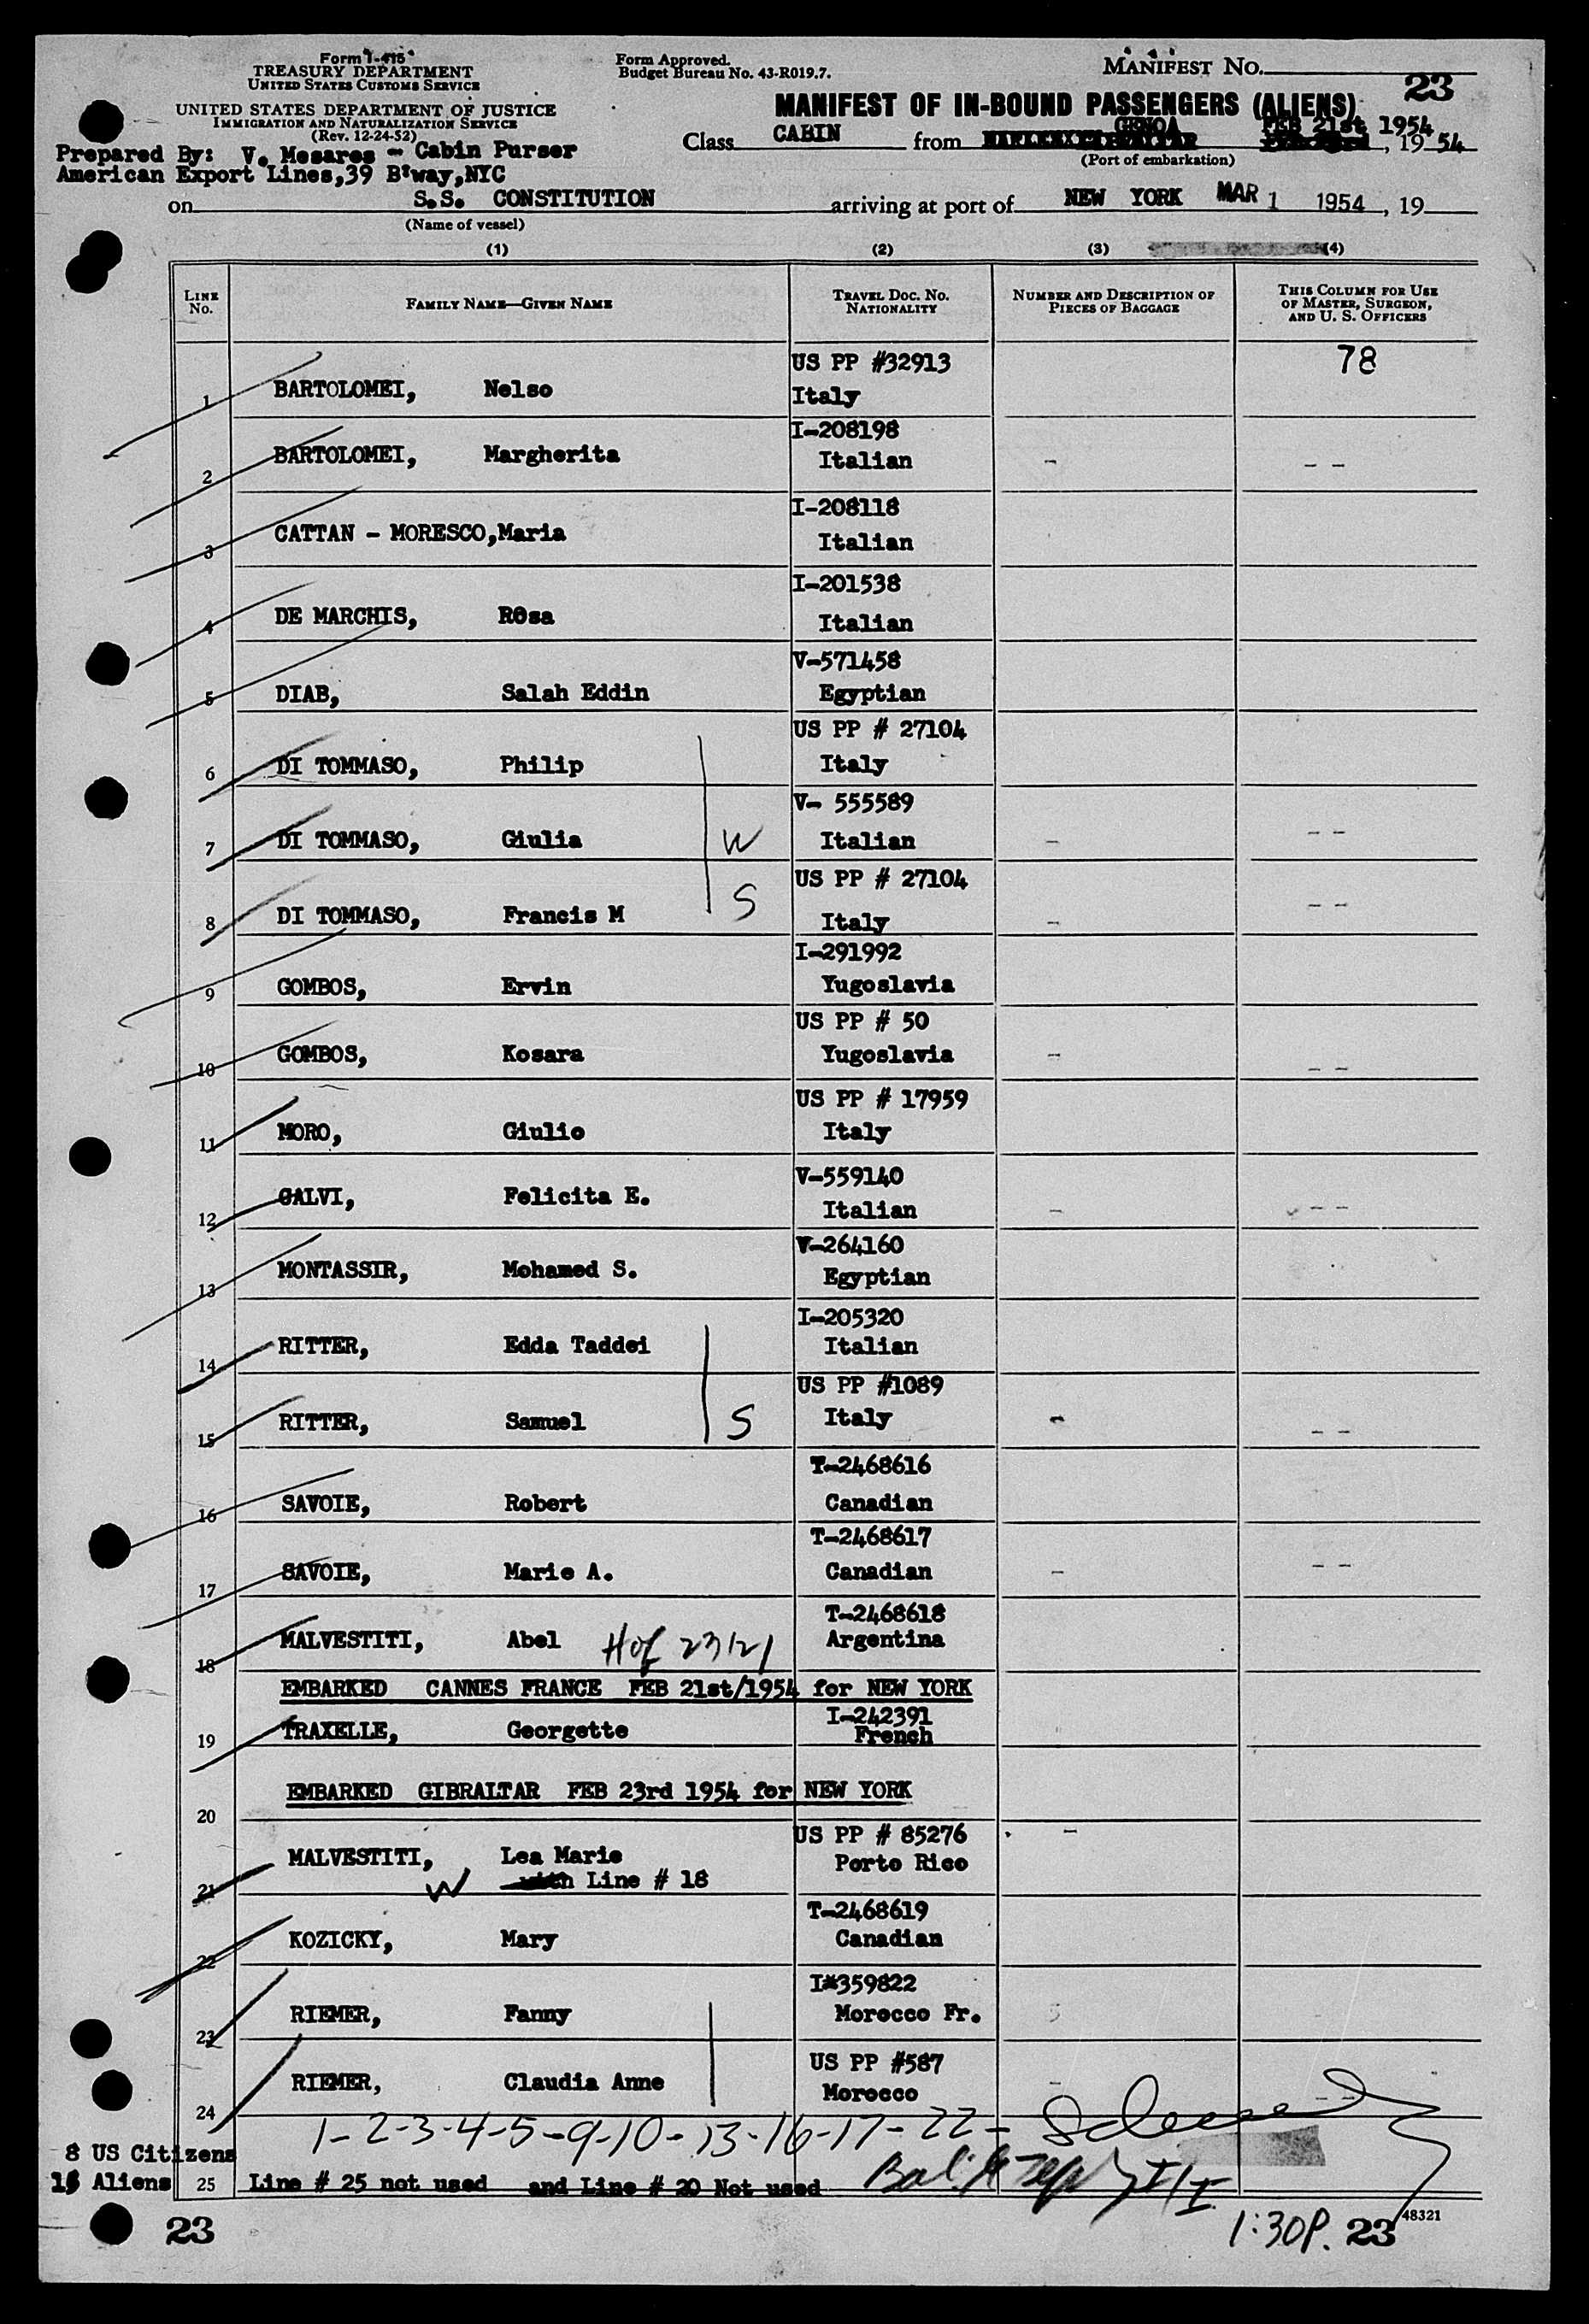 Form I-415
TREASURY DEPARTMENT
UNITED STATES CUSTOMS SERVICE
UNITED STATES DEPARTMENT OF JUSTICE
IMMIGRATION AND NATURALIZATION SERVICE
(Rev. 12-24-52)
Form Approved.
Budget Bureau No. 43-R019.7.
MANIFEST NO.
23
MANIFEST OF IN-BOUND PASSENGERS (ALIENS)
Prepared By: V. Mesares - Cabin Purser
American Export Lines,39 B'way,NYC
Class CABIN from GENOA FEB 21st 1954, 1954
(Port of embarkation)
on S.S. CONSTITUTION arriving at port of NEW YORK MAR 1 1954, 19
(Name of vessel)
(1) (2) (3) (4)
LINE No. FAMILY NAME—GIVEN NAME TRAVEL DOC. NO. NATIONALITY NUMBER AND DESCRIPTION OF PIECES OF BAGGAGE THIS COLUMN FOR USE OF MASTER, SURGEON, AND U. S. OFFICERS
US PP #32913 78
1 BARTOLOMEI, Nelso Italy
I-208198
2 BARTOLOMEI, Margherita Italian - - -
I-208118
3 CATTAN - MORESCO,Maria Italian
I-201538
4 DE MARCHIS, R0sa Italian
V-571458
5 DIAB, Salah Eddin Egyptian
US PP # 27104
6 DI TOMMASO, Philip Italy
V- 555589
7 DI TOMMASO, Giulia W Italian - - -
US PP # 27104
8 DI TOMMASO, Francis M S Italy - - -
I-291992
9 GOMBOS, Ervin Yugoslavia
US PP # 50
10 GOMBOS, Kosara Yugoslavia - - -
US PP # 17959
11 MORO, Giulio Italy
V-559140
12 GALVI, Felicita E. Italian - - -
V-264160
13 MONTASSIR, Mohamed S. Egyptian
I-205320
14 RITTER, Edda Taddei Italian
US PP #1089
15 RITTER, Samuel S Italy - - -
T-2468616
16 SAVOIE, Robert Canadian
T-2468617
17 SAVOIE, Marie A. Canadian - - -
T-2468618
18 MALVESTITI, Abel H of 23/21 Argentina
EMBARKED CANNES FRANCE FEB 21st/1954 for NEW YORK
I-242391
19 TRAXELLE, Georgette French
EMBARKED GIBRALTAR FEB 23rd 1954 for NEW YORK
20
US PP # 85276 -
MALVESTITI, Lea Marie Porto Rico
21 W with Line # 18
T-2468619
22 KOZICKY, Mary Canadian
I*359822
23 RIEMER, Fanny Morocco Fr.
US PP #587
24 RIEMER, Claudia Anne Morocco - - -
1-2-3-4-5-9-10-13-16-17-22-
8 US Citizens
15 Aliens 25 Line # 25 not used and Line # 20 Not used
Bal.
23 1:30P. 23 48321